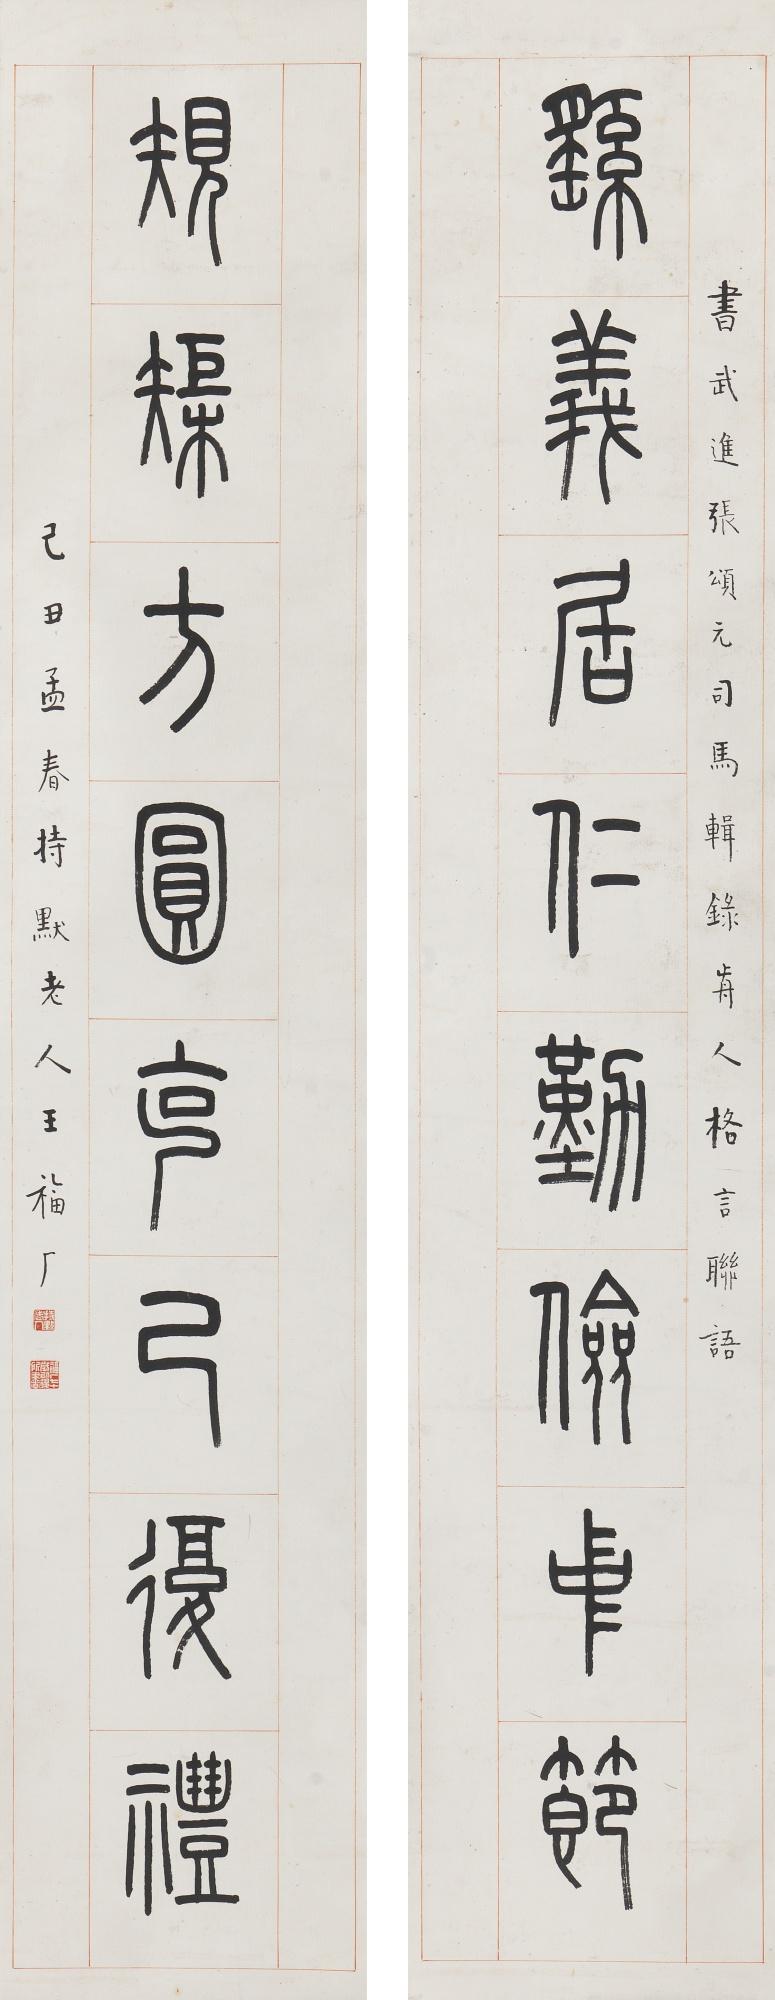 書武進張頌元司馬輯錄歬人格言聯語
繇義居仁勤儉用節
規榘方圓克己復禮
己丑孟春持默老人王福厂